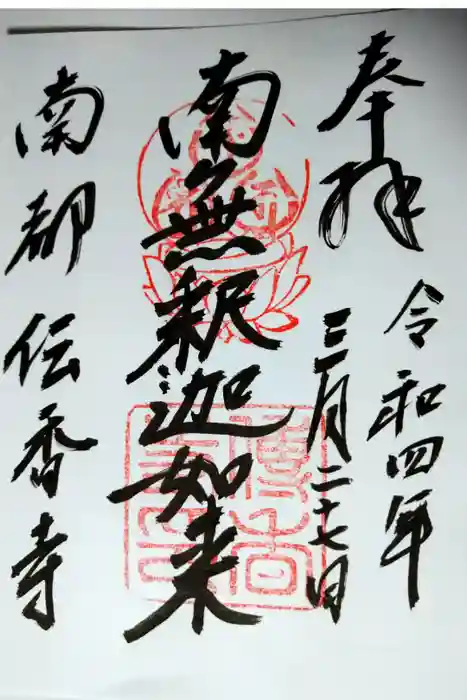 奉拝
令和四年
三月二十七日
南無釈迦如来
南都 伝香寺